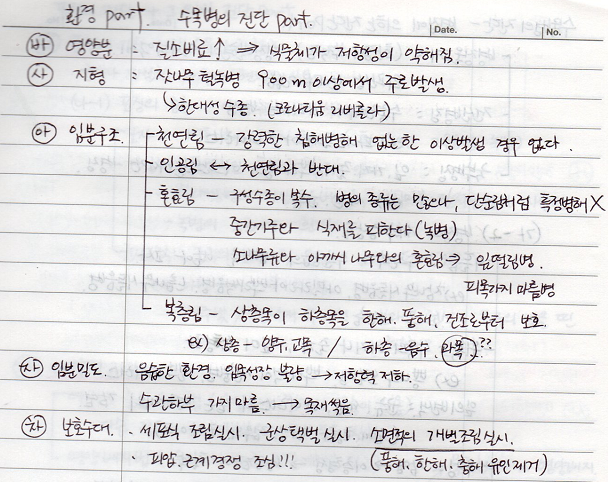 환경 part. 수목병의 진단 part.
Date. No.
㉳ 영양분 : 질소비료↑ → 식물체가 저항성이 약해짐.
㉴ 지형 : 잣나무 털녹병 900m 이상에서 주로발생.
↳한대성 수종. (크로나티움 리비콜라)
㉵ 임분구조. - 천연림 - 강력한 침해병해 없는한 이상발생 경우 없다.
- 인공림 ↔ 천연림과 반대.
- 혼효림 - 구성수종이 복수. 병의 종류는 많으나, 단순림처럼 특정병해X
중간기주라 식재를 피한다 (녹병)
소나무류와 아까시 나무라의 혼효림 ⇒ 잎떨림병.
피목가지 마름병
- 복층림 - 상층목이 하층목을 한해. 풍해, 건조로부터 보호.
ex) 상층 - 양수, 교목 / 하층 - 음수, 관목??
㉶ 임분밀도. 음습한 환경, 임목성장 불량 → 저항력 저하.
수관하부 가지마름 → 목재썩음.
㉷ 보호수대. · 세포식 조림실시. 군상택벌 실시. 소면적의 개벌조림실시.
· 피압. 근계경쟁 조심!!! (풍해, 한해, 충해 유인제거)